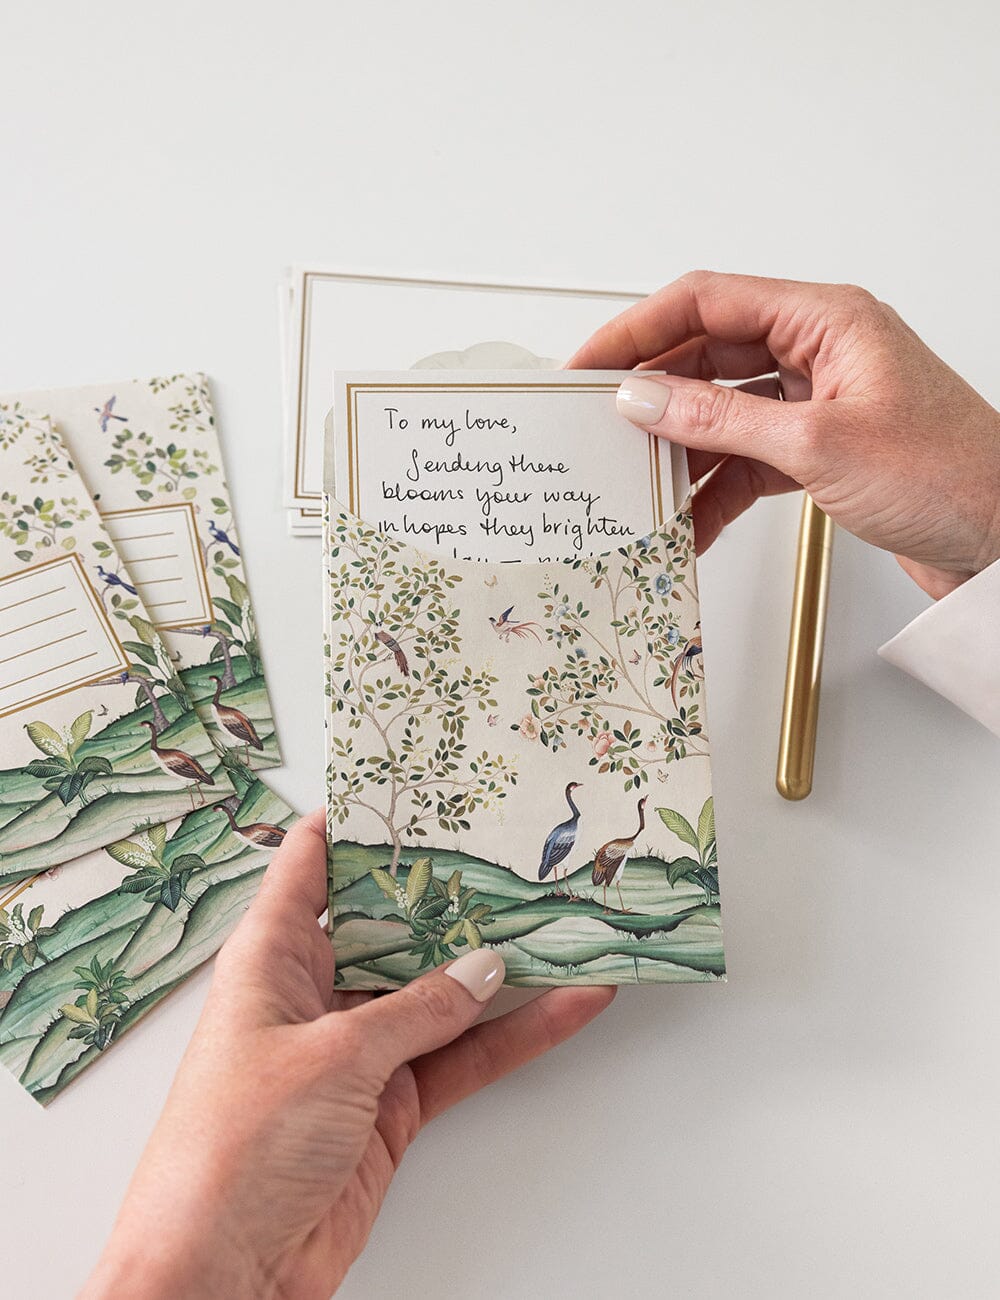 To my love,
Sending these
blooms your way
in hopes they brighten